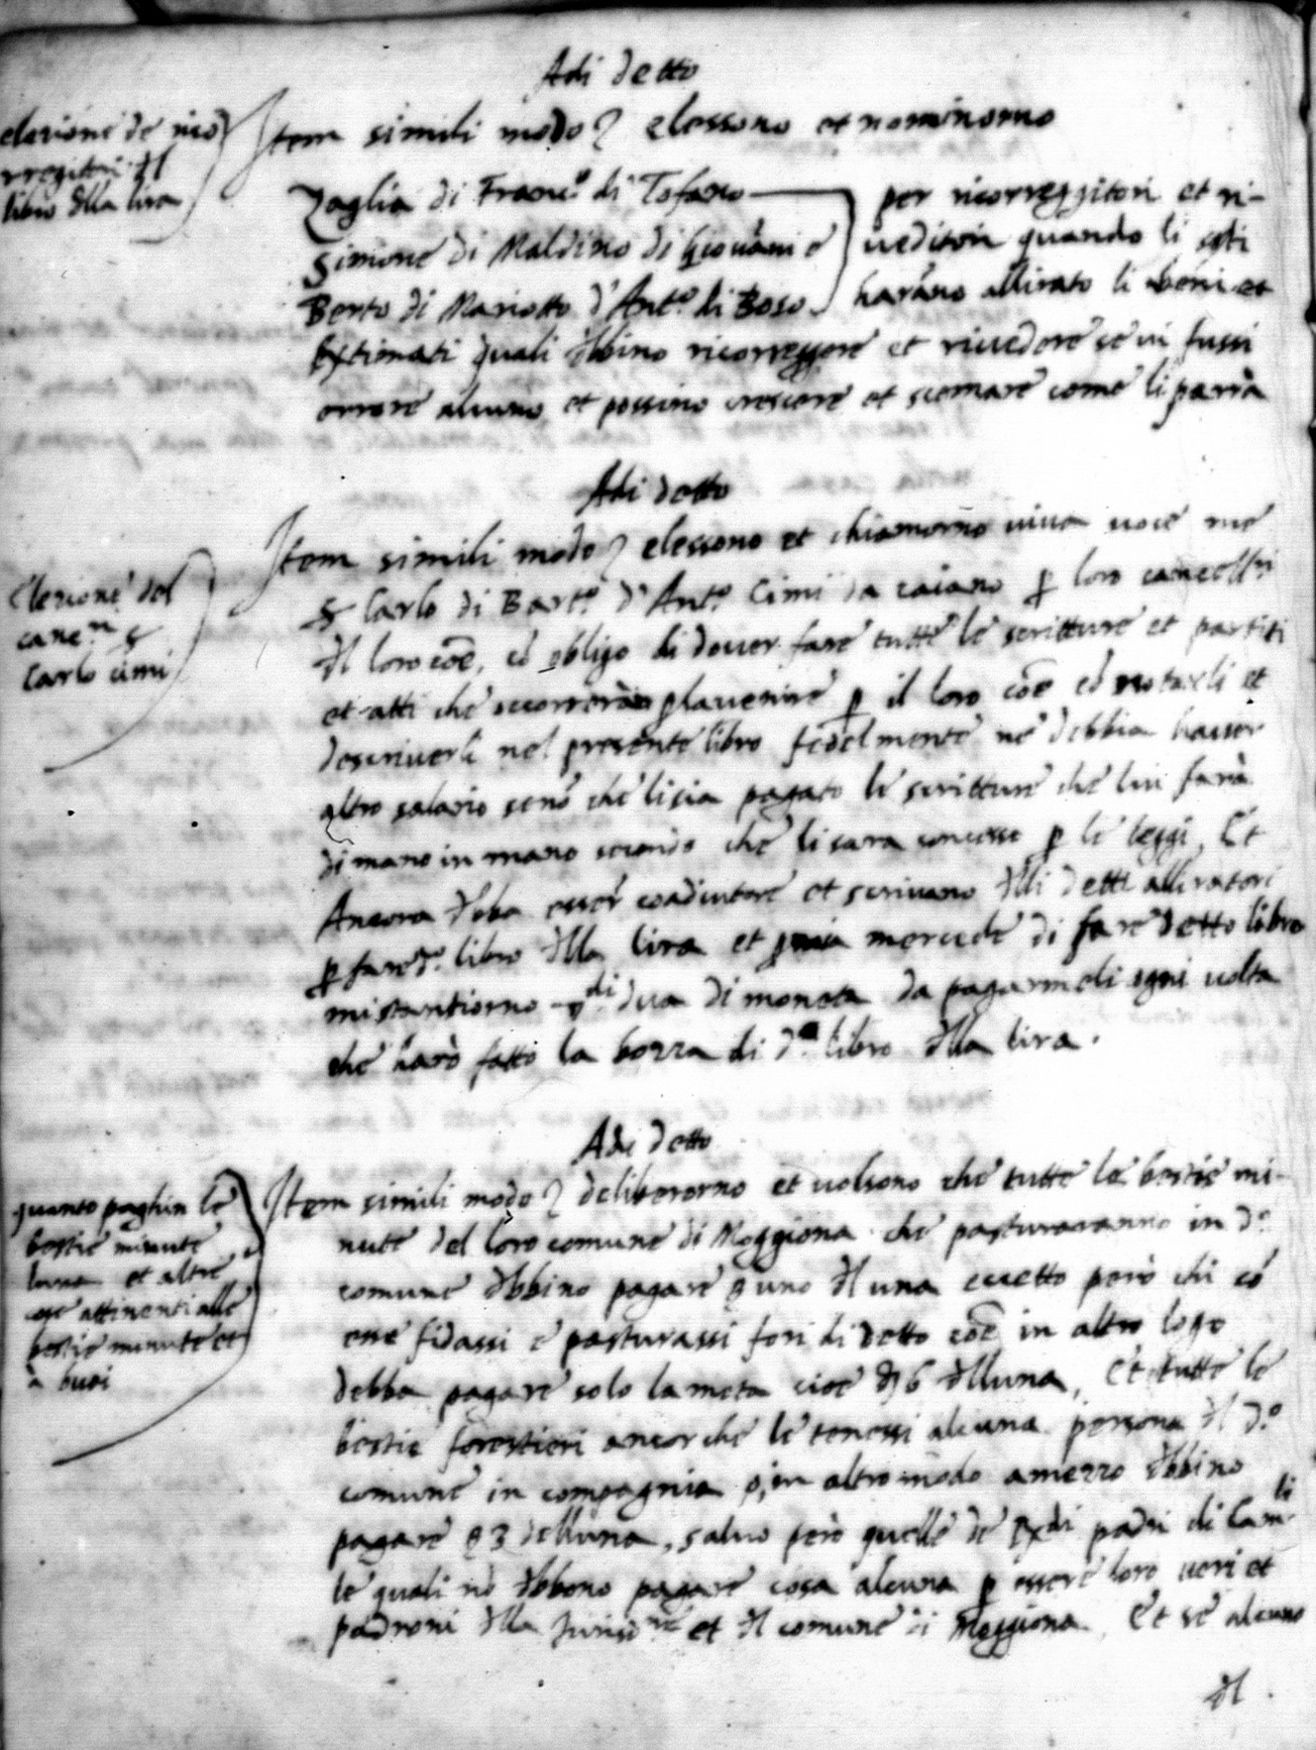 Adi detto
elezione de rico
rregitori dl
libro dlla lira
Item simili modo elessono et nominorno
Zaglia di Franc.o di Tofano
Simone di Maldino di Giovāni e
Berto di Mariotto d'Ant.o di Boso
per ricorreggitori et ri-
veditori quando li
harāno allirato li beni et
Extimati quali dbbino ricorreggere et rivedere se vi fussi
errore alcuno, et possino crescere et scemare come li parrà
Adi detto
Elezione del
canc.re S
Carlo cimi
Item simili modo elessono et chiamorno viva voce me
S Carlo di Bart.o d'Ant.o Cimi da raiano p loro
dl loro cōe, cō obligo di dover fare tutte le scritture et partiti
et atti che p lavenire p il loro cōe cō notarli et
descriverli nel presente libro fedelmente ne debbia haver
altro salario senō che li sia pagato le scritture che lui farà
di mano in mano secondo che li sara concesso p le leggi, Et
Ancora dbba esser coadiutore et scrivano dlli detti alliratori
p fare d.o libro dlla lira et p mia mercede di fare detto libro
mistantiorno di dua di moneta da pagarmeli ogni volta
che harò fatto la bozza di d.o libro dlla lira.
Adi detto
quanto paghin le
bestie minute
luna et altre
cose attinenti alle
bestie minute et
a buoi
Item simili modo deliberorno et volsono che tutte le bestie mi-
nute del loro comune di Moggiona che pasturaranno in d.o
comune dbbino pagare uno dl una eccetto però chi cō
esse fidassi e pasturassi fori di detto cōe in altro logo
debba pagare solo la meta cioe 6 dlluna, Et tutte le
bestie forestieri ancor che le tenessi alcuna persona dl d.o
comune in compagnia o, in altro modo amezzo dbbino
pagare 3 delluna, salvo però quelle de Rxdi padri di Camli
le quali nō dbbono pagare cosa alcuna p essere loro veri et
padroni dlla Jurisd.ne et dl comune di Moggiona, Et se alcuno
dl.